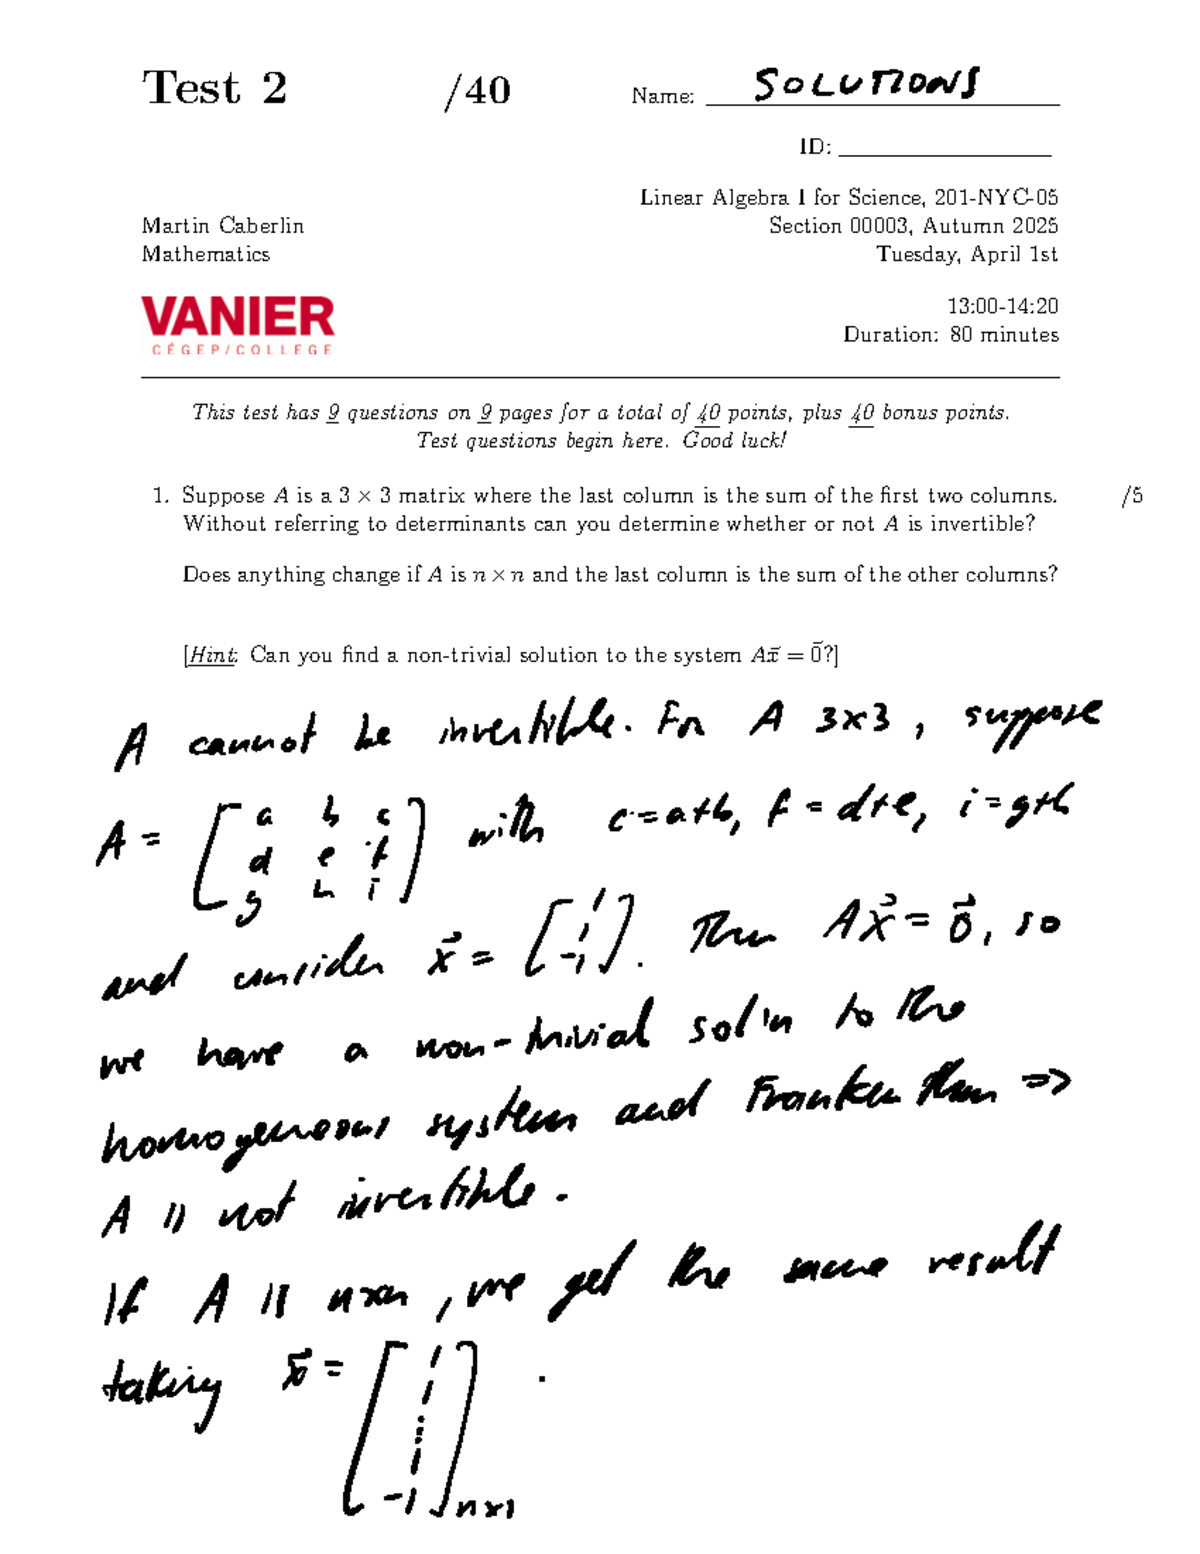 Test 2 /40 Name: SOLUTIONS
ID:
Linear Algebra I for Science, 201-NYC-05
Martin Caberlin Section 00003, Autumn 2025
Mathematics Tuesday, April 1st
VANIER 13:00-14:20
CÉGEP/COLLEGE Duration: 80 minutes
This test has 9 questions on 9 pages for a total of 40 points, plus 40 bonus points.
Test questions begin here. Good luck!
1. Suppose A is a 3 × 3 matrix where the last column is the sum of the first two columns. /5
Without referring to determinants can you determine whether or not A is invertible?
Does anything change if A is n × n and the last column is the sum of the other columns?
[Hint: Can you find a non-trivial solution to the system Ax⃗ = 0⃗?]
A cannot be invertible. For A 3x3, suppose
A = [a b c
d e f
g h i] with c=a+b, f=d+e, i=g+h
and consider x⃗ = [1 1 -1]. Then Ax⃗ = 0⃗, so
we have a non-trivial sol'n to the
homogeneous system and Franken Thm ⇒
A is not invertible.
If A is nxn, we get the same result
taking x⃗ = [1
1
⋮
1
-1]nx1.